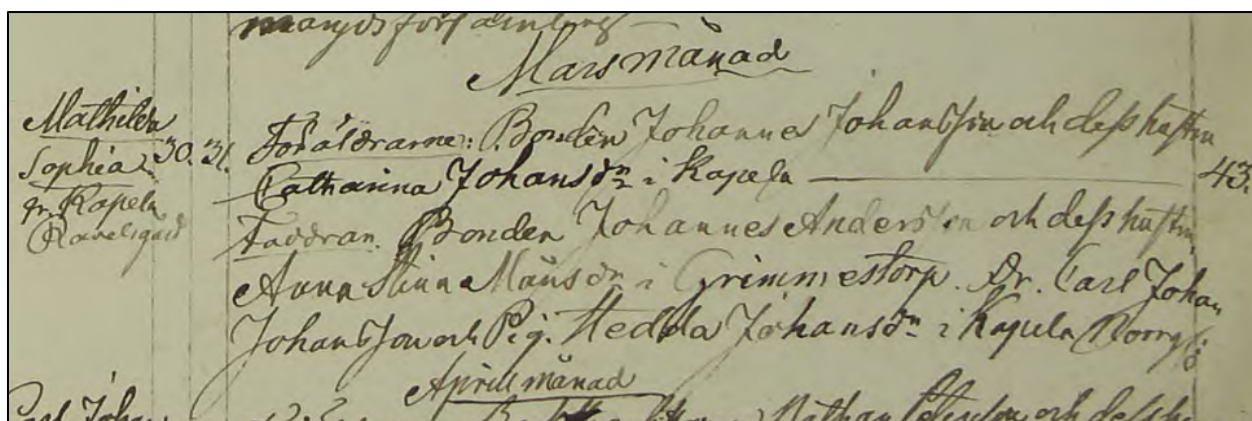 mangds församlings
Mars månad
Mathilda
Sophia 30. 31.
fr. Kapeln
Föräldrarne: Bonden Johannes Johansson och dess hustru
Catharina Johansdr i Kapeln 43.
Faddrar. Bonden Johannes Andersson och dess hustru
Anna Stina Månsdr i Grimmestorp. Dr. Carl Johan
Johansson och Pig. Hedda Johansdr i Kapeln Norrg:
Aprill månad
Carl Johan
och dess